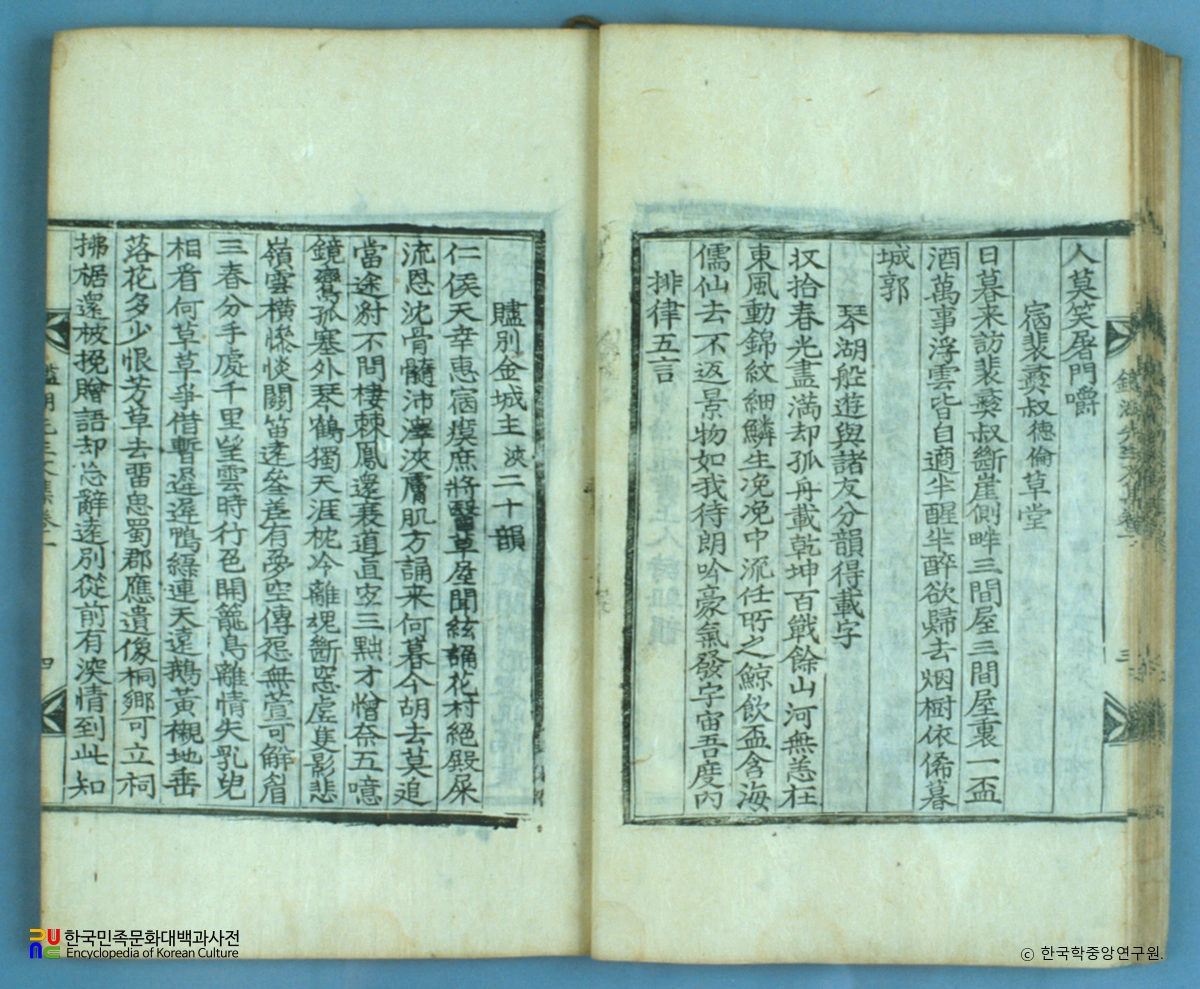 人莫笑屠門嚼
宿裴彛叔德倫草堂
日暮来訪裴彛叔斷崖側畔三間屋三間屋裏一盃
酒萬事浮雲皆自適半醒半醉欲歸去烟樹依俙暮
城郭
琴湖船遊與諸友分韻得載字
収拾春光盡滿却孤舟載乾坤百戰餘山河無恙在
東風動錦紋細鱗生浼浼中流任所之鯨飲盃含海
儒仙去不返景物如我待朗吟豪氣發宇宙吾度內
排律五言
贐別金城主浹二十韻
仁侯天幸惠宿瘼庶將醫草屋聞絃誦花村絕殿屎
流恩沈骨髓沛澤浹膚肌方誦来何暮今胡去莫追
當途豺不問棲棘鳳還衰道直空三黜才憎奈五噫
鏡鸞孤塞外琴鶴獨天涯枕冷離魂斷窓虛隻影悲
嶺雲橫慘惔關笛遠參差有夢空傳怨無萱可解眉
三春分手處千里望雲時行色開籠鳥離情失乳兒
相看何草草爭借暫遲遲鴨綠連天遠鵝黃襯地垂
落花多少恨芳草去留思蜀郡應遺像桐鄉可立祠
拂裾還被挽贈語却忘辭遠別從前有深情到此知
四
三
한국민족문화대백과사전
Encyclopedia of Korean Culture
ⓒ 한국학중앙연구원.